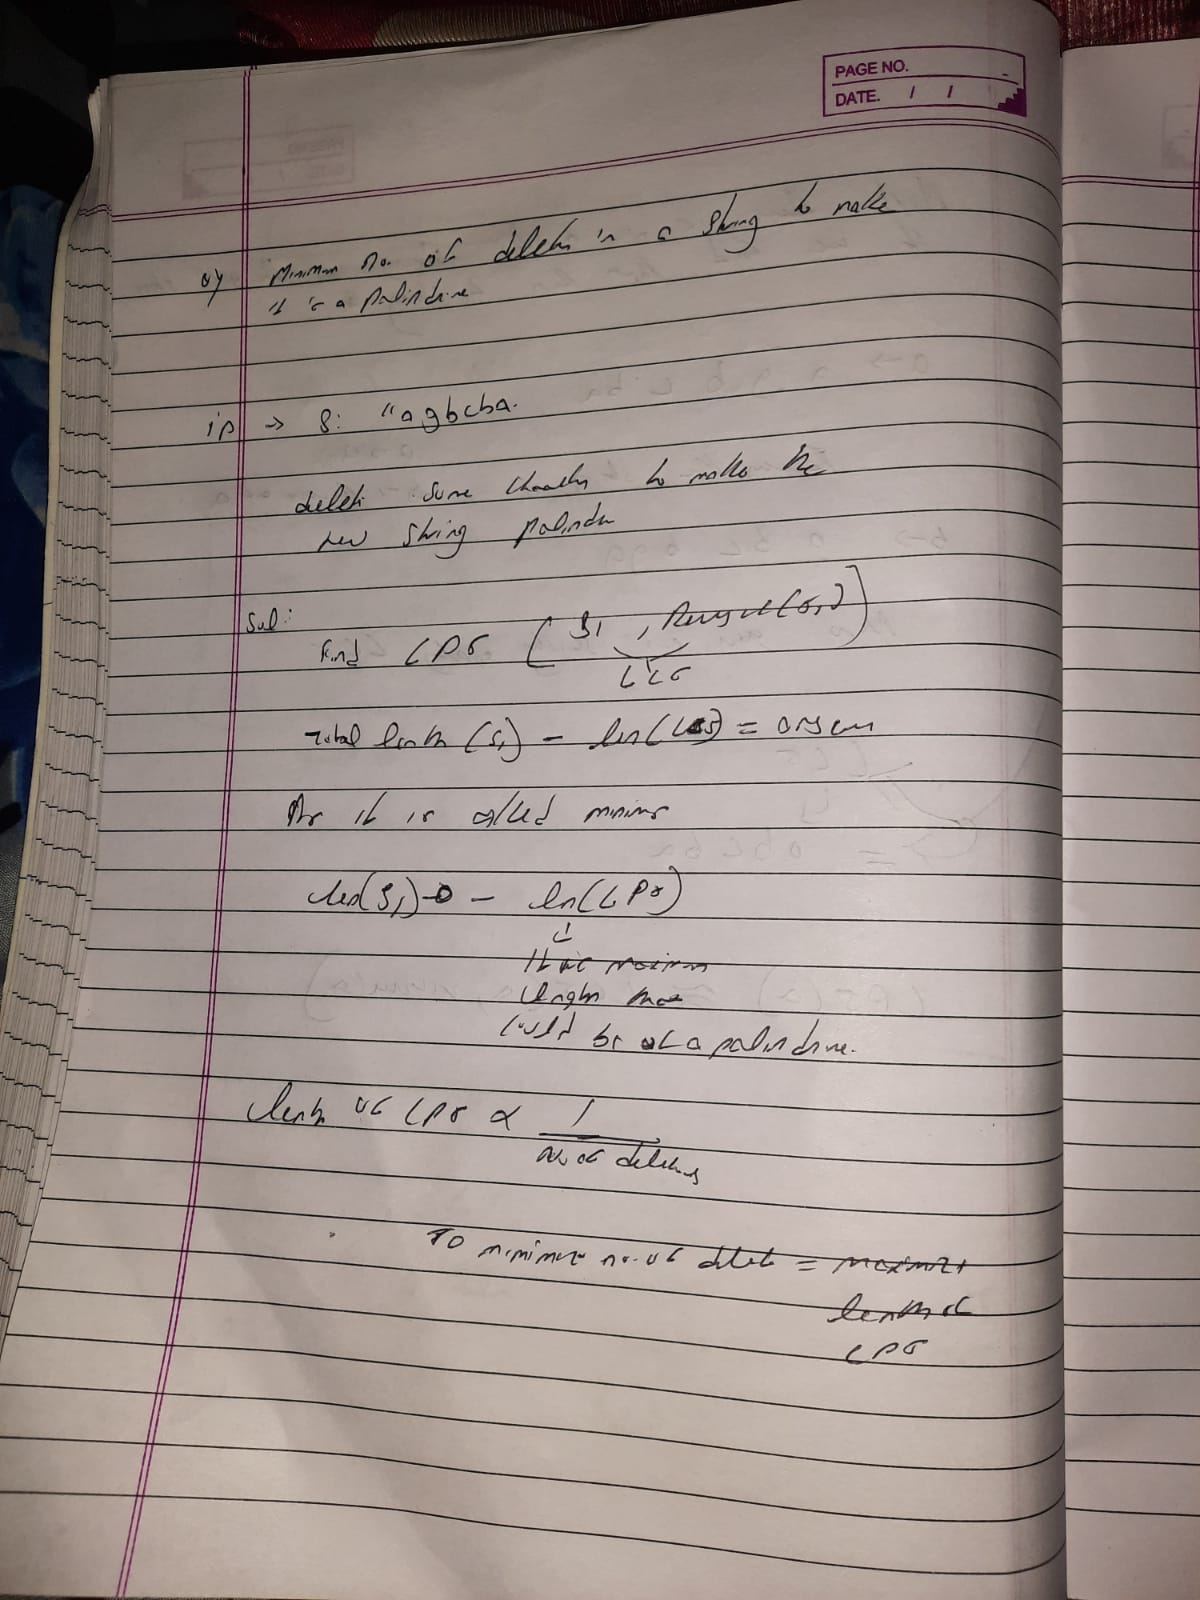 PAGE NO.
DATE. / /
Q) Minimum no. of deletion in a string to make
it is a palindrome
ip → S: "agbcba.
delete some character to make the
new string palindrom
Sol:
Find LPS [ S1 , Reverse(S1) ]
LCS
Total lenth (S1) - len(LCS) = answer
As it is called minimum
len(S1) - len(LPS)
↓
length that
could be of a palindrome.
lenth of LPS ∝ 1
no of deletions
To minimize no. of delete = maximize
lenth of
LPS